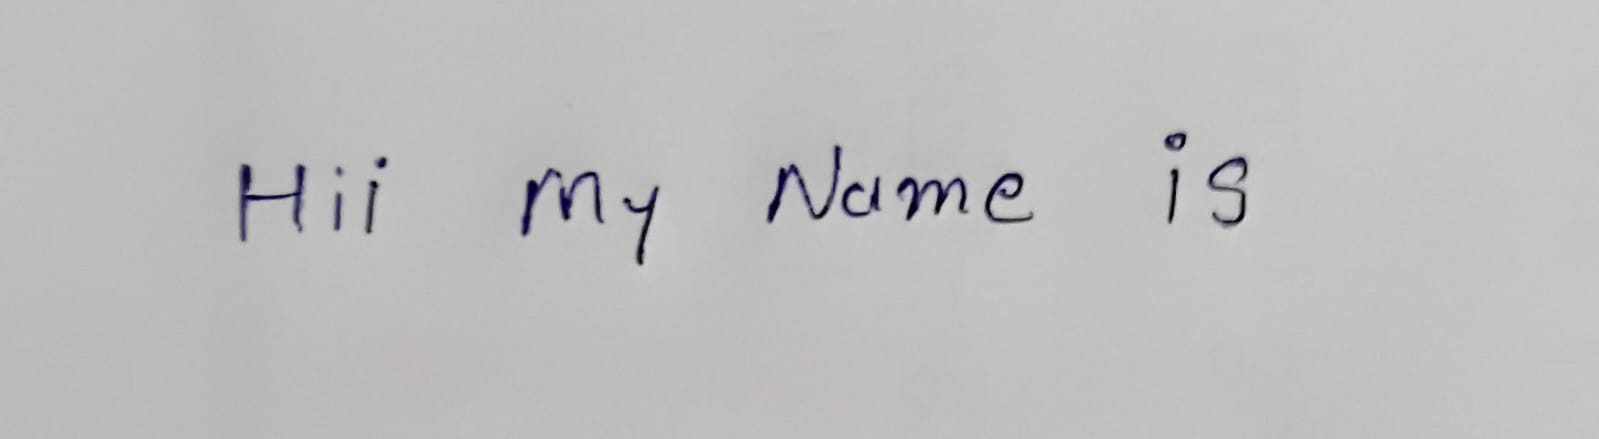 Hii My Name is